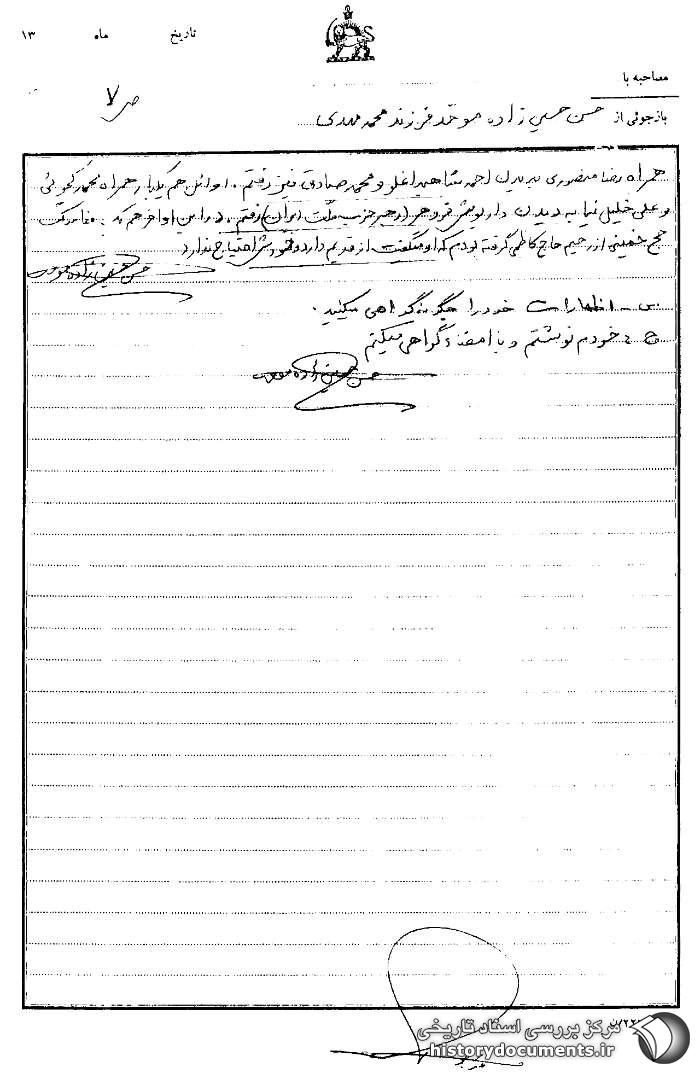 تاریخ ماه ۱۳
مصاحبه با
ص ۷
بازجوئی از حسن حسین زاده موحد فرزند محمد مهدی
همراه رضا منصوری به دیدن احمد شاهبداغلو و محمد صادق نیز رفتم. اوائل هم یکبار همراه محمد کچوئی
و علی خلیل نیا به دیدن داریوش فروهر (رهبر حزب ملت ایران) رفتم. در این اواخر هم که
حج خمینی از رحیم حاج کاظمی گرفته بودم که او میگفت از قدیم دارد و خودش احتیاج ندارد
حسن حسین زاده موحد
س - اظهارات خود را چگونه گواهی میکنید.
ج - خودم نوشتم و با امضاء گواهی میکنم
حسن حسین زاده موحد
مرکز بررسی اسناد تاریخی
historydocuments.ir